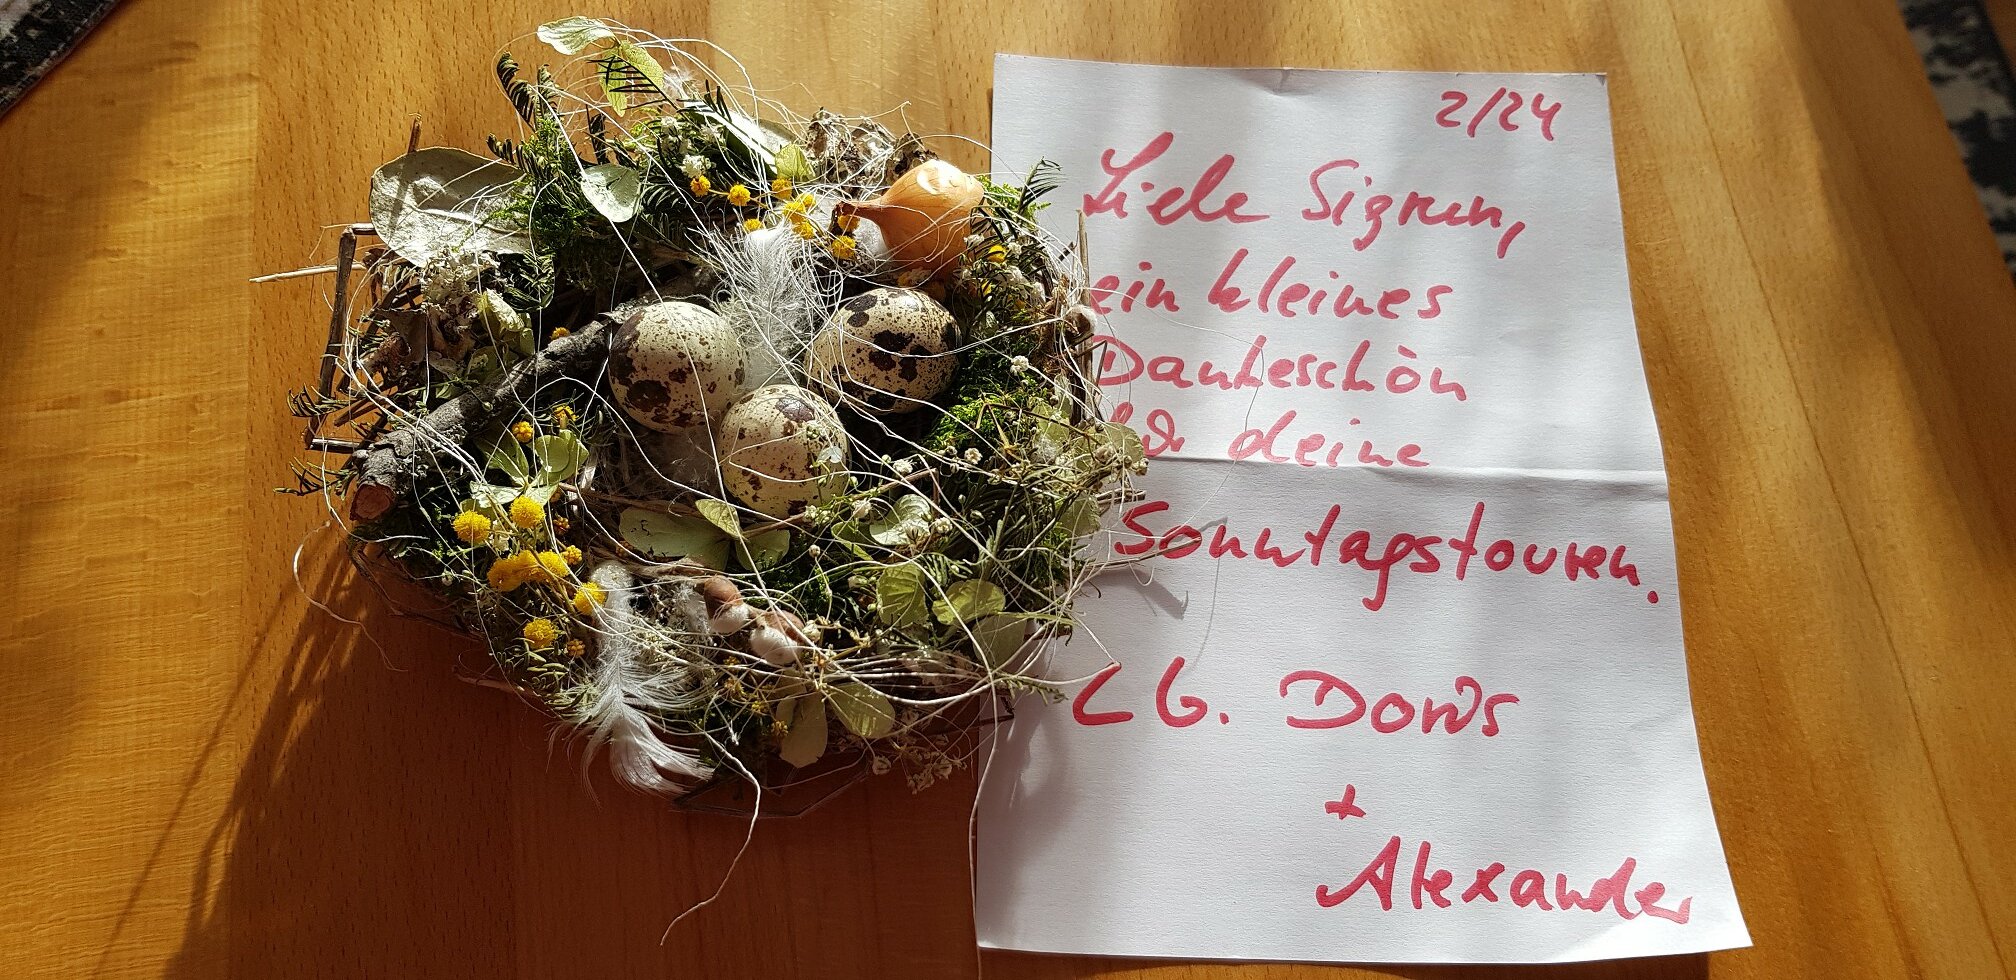 2/24
Liebe Sigrun,
ein kleines
Dankeschön
für deine
Sonntagstouren.
LG. Doris
+
Alexander